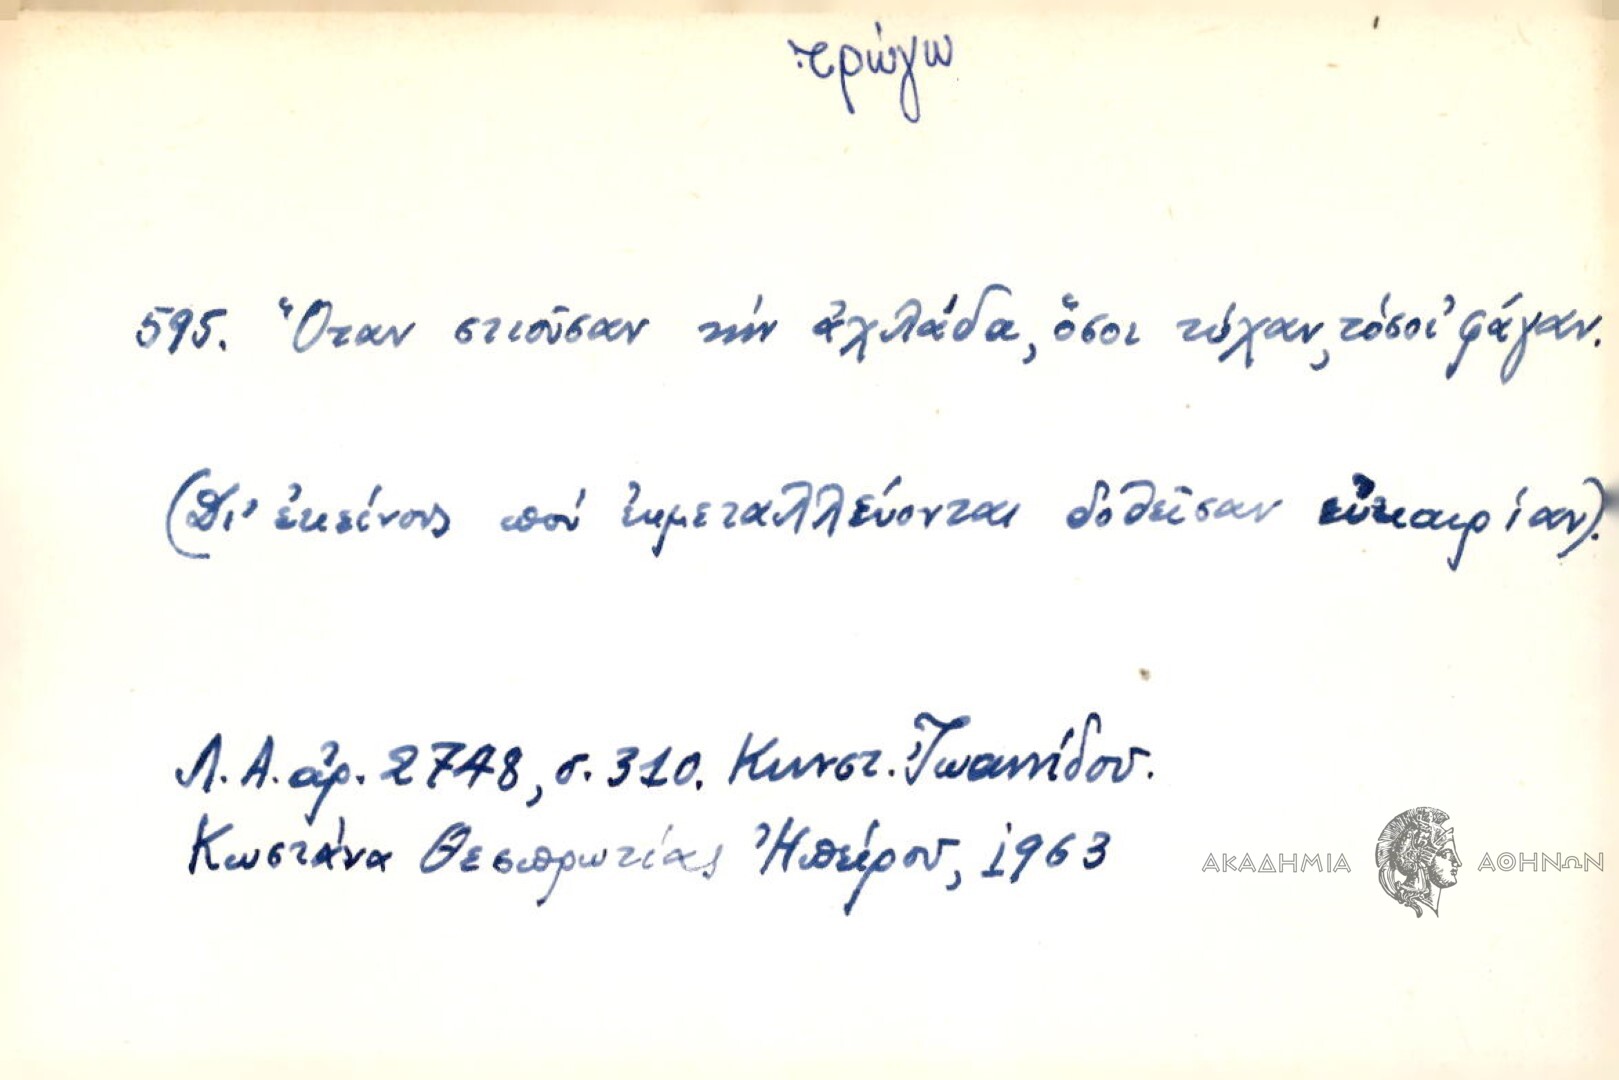 τρώγω
595. Ὅταν στιοῦσαν τὴν ἀχλάδα, ὅσοι τύχαν, τόσοι φάγαν.
(Δι' ἐκείνους ποὺ ἐκμεταλλεύονται δοθεῖσαν εὐκαιρίαν).
Λ. Α. ἀρ. 2748, σ. 310. Κωνστ. Ἰωαννίδου.
Κωστάνα Θεσπρωτίας Ἠπείρου, 1963
ΑΚΑΔΗΜΙΑ ΑΘΗΝΩΝ